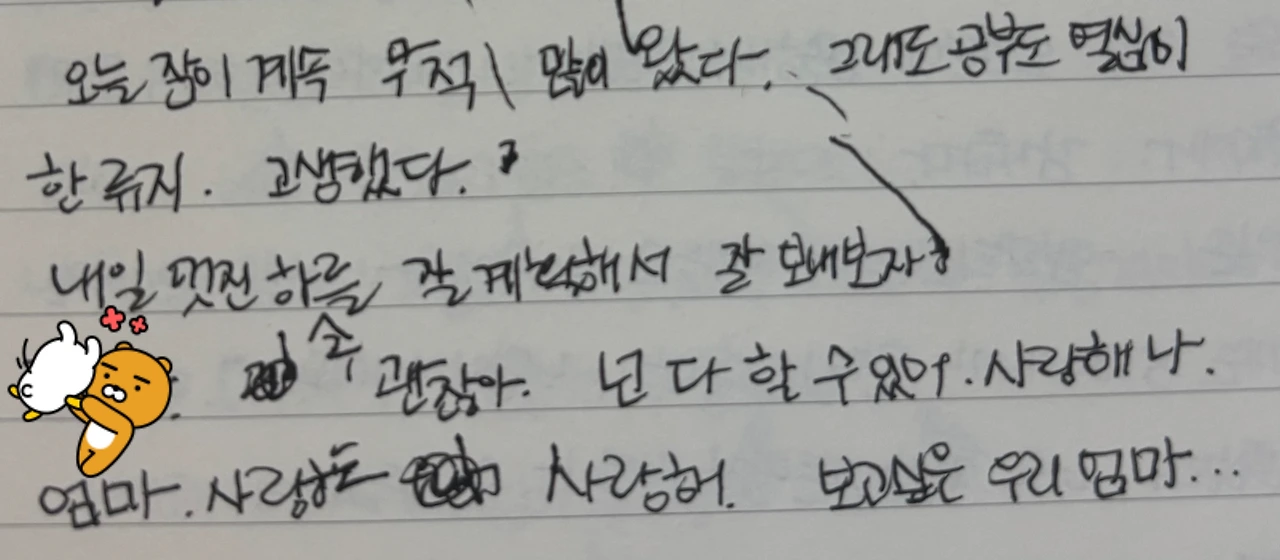 오늘 잠이 계속 무척 많이 왔다. 그래도 공부도 열심히
한 류지. 고생했다.
내일 멋진 하루를 잘 계획해서 잘 보내보자
괜찮아. 넌 다 할 수 있어. 사랑해 나.
엄마. 사랑 사랑혀. 보고싶은 우리 엄마...